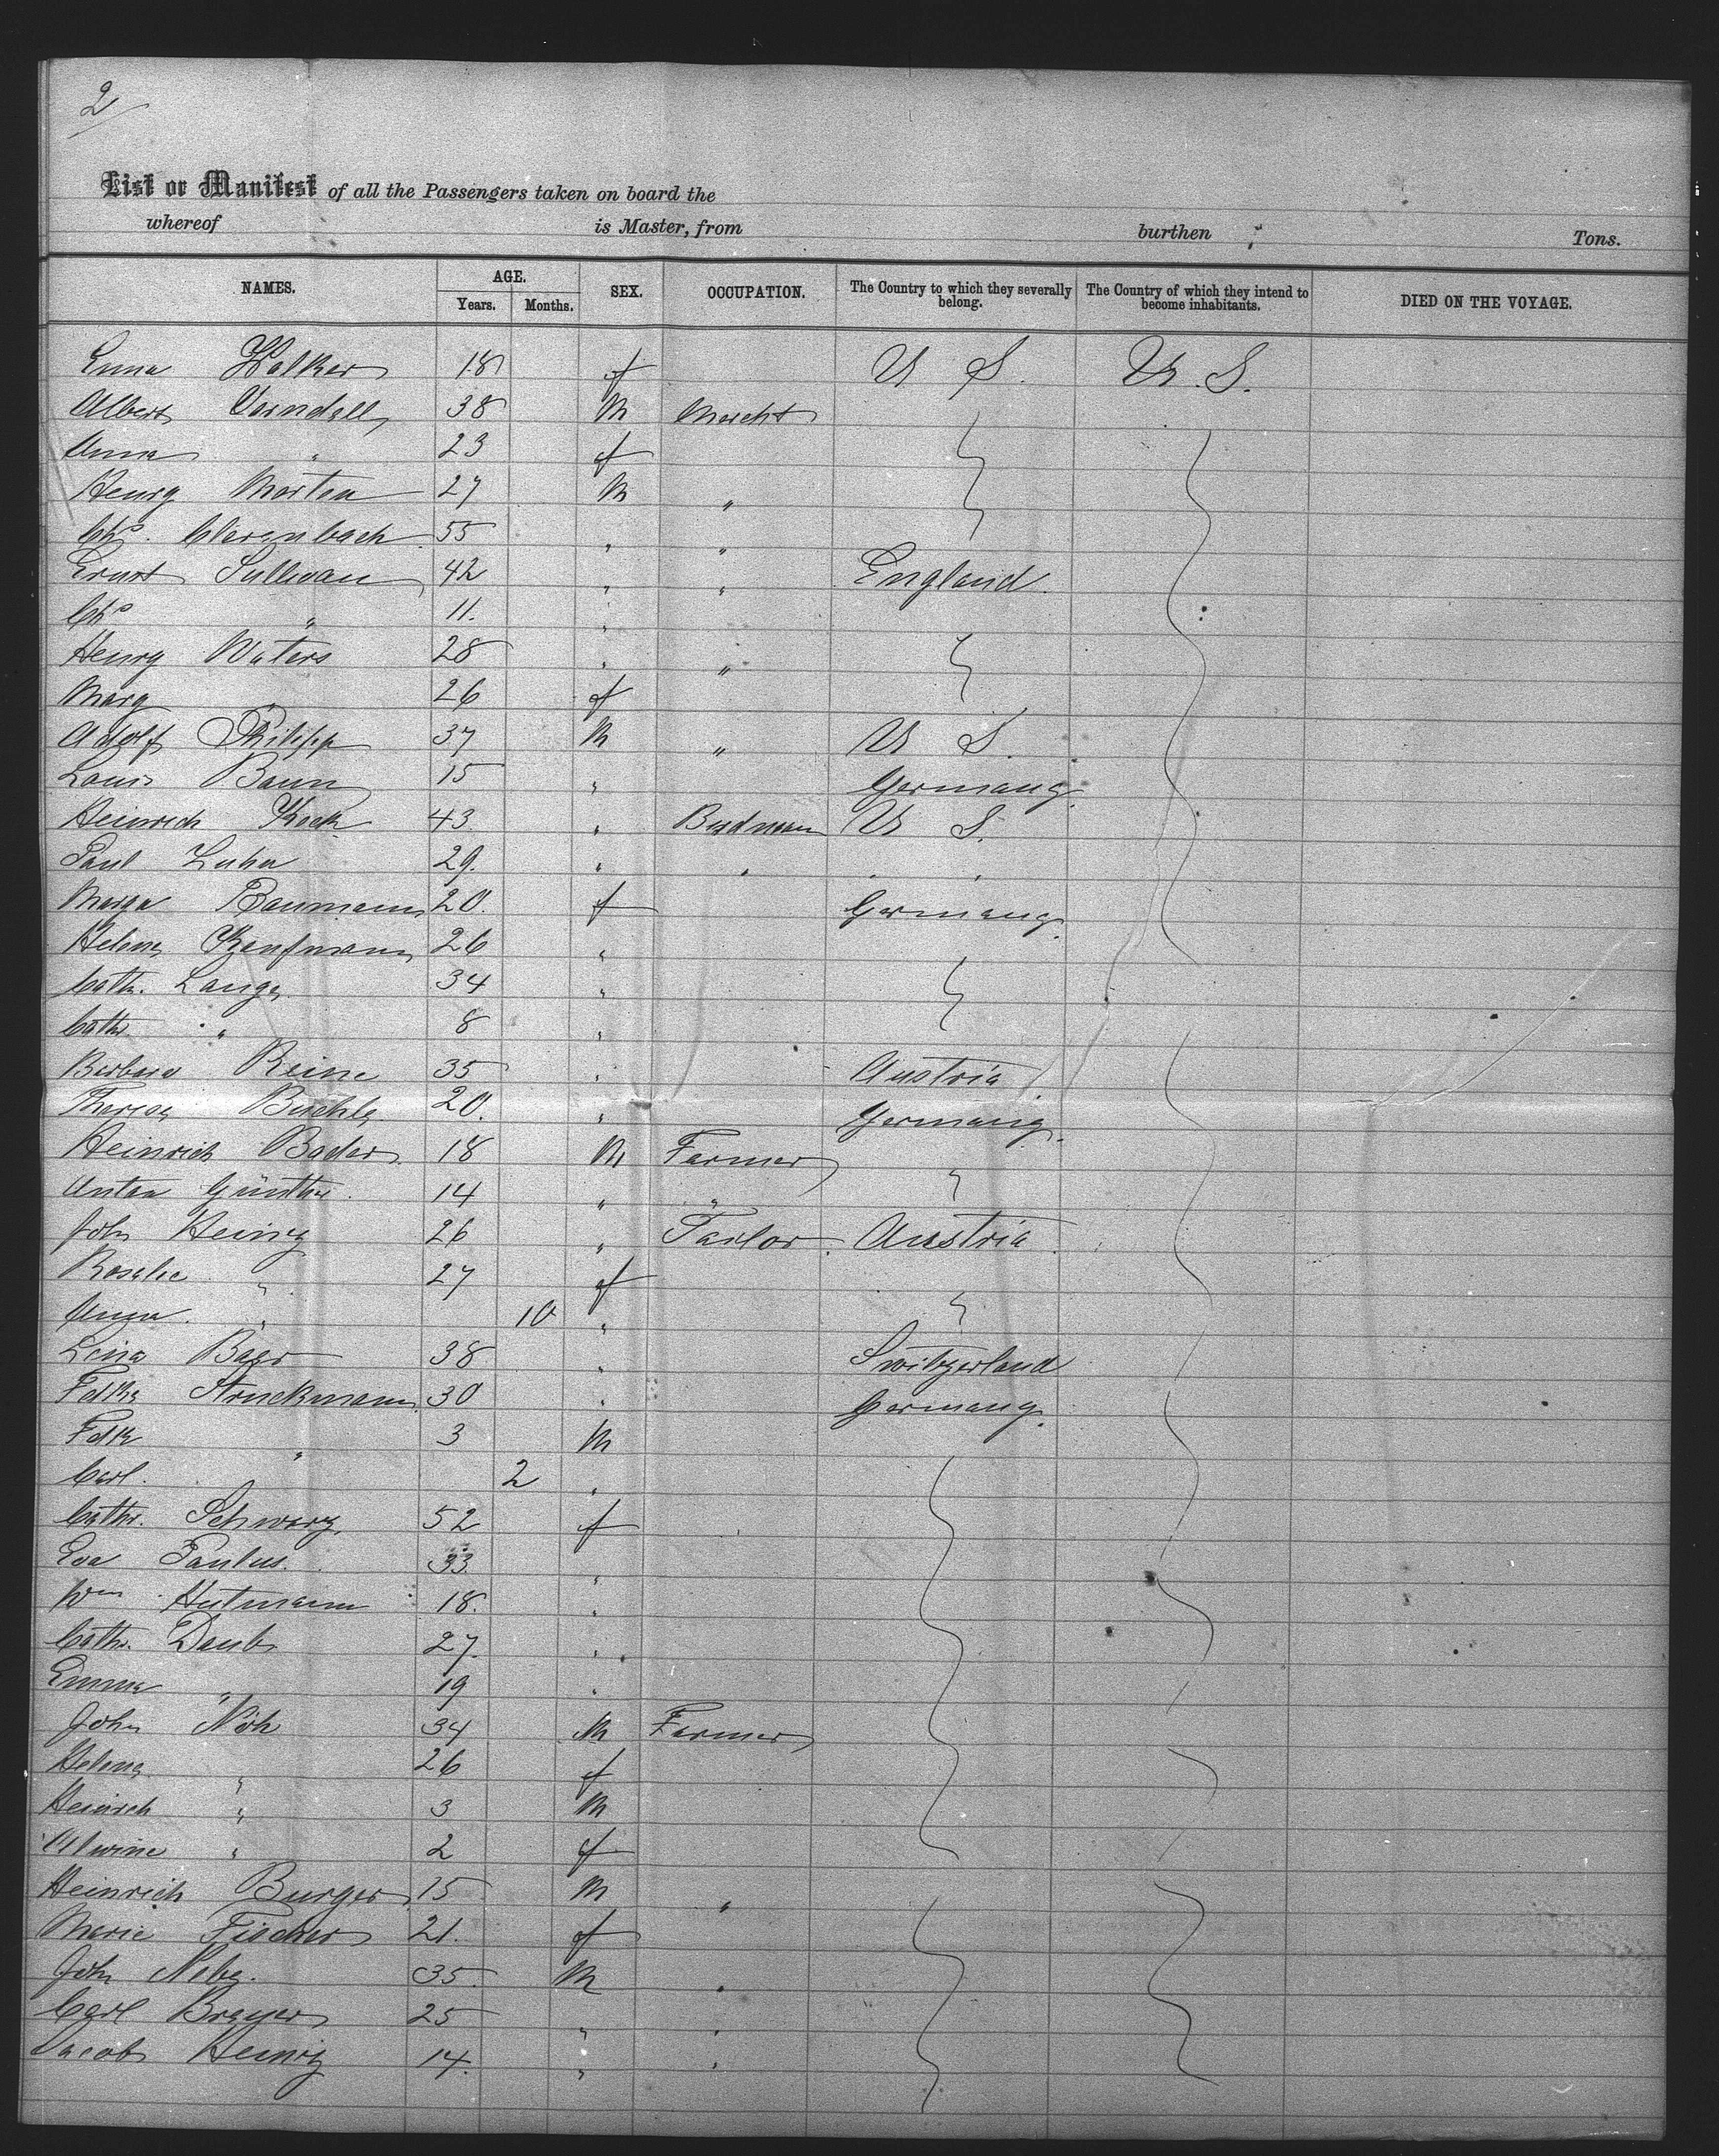 2/
List or Manifest of all the Passengers taken on board the
whereof is Master, from burthen Tons.
NAMES. AGE. Years. Months. SEX. OCCUPATION. The Country to which they severally belong. The Country of which they intend to become inhabitants. DIED ON THE VOYAGE.
Walker 18 f U S. U. S.
Albert 38 M Mercht
Anna " 23 f
Henry Morten 27 M "
Chs. Clarenbach 55 " "
Ernst Sullivan 42 " " England.
Chs " 11. "
Henry Waters 28 " "
Marg " 26 f
Adolf Philipp 37 M " U S.
Louis Baun 15 " Germany.
Heinrich Kock 43. " U S.
Paul Luhn 29. " " " "
Marga Baumann 20. f Germany.
Helena Kaufmann 26 "
Cath. Lange 34 "
Cath. " 8 "
Barbara Reine 35 " Austria
Theresa 20. " Germany.
Heinrich Bader 18 M Farmer "
Anton Günther. 14 " "
John Heinz 26 " Tailor. Austria.
Rosalie " 27 f
Anna. " 10 " "
Lina Baer 38 " Switzerland
Fdke Struckmann 30 " Germany.
Fdk " 3 M
Carl. " 2 "
Cath. Schwarz. 52 f
Eva Paulus. 33. "
Wm Hutmann 18. "
Cath. Daub 27. "
Emma " 19 "
John Nöh 34 M Farmer
Helena " 26 f
Heinrich " 3 M
Alwine " 2 f
Heinrich Burger 15 M "
Marie Fischer 21. f
John Nebe. 35. M "
Carl Breyer 25 " "
Jacob Heinz 14. " "